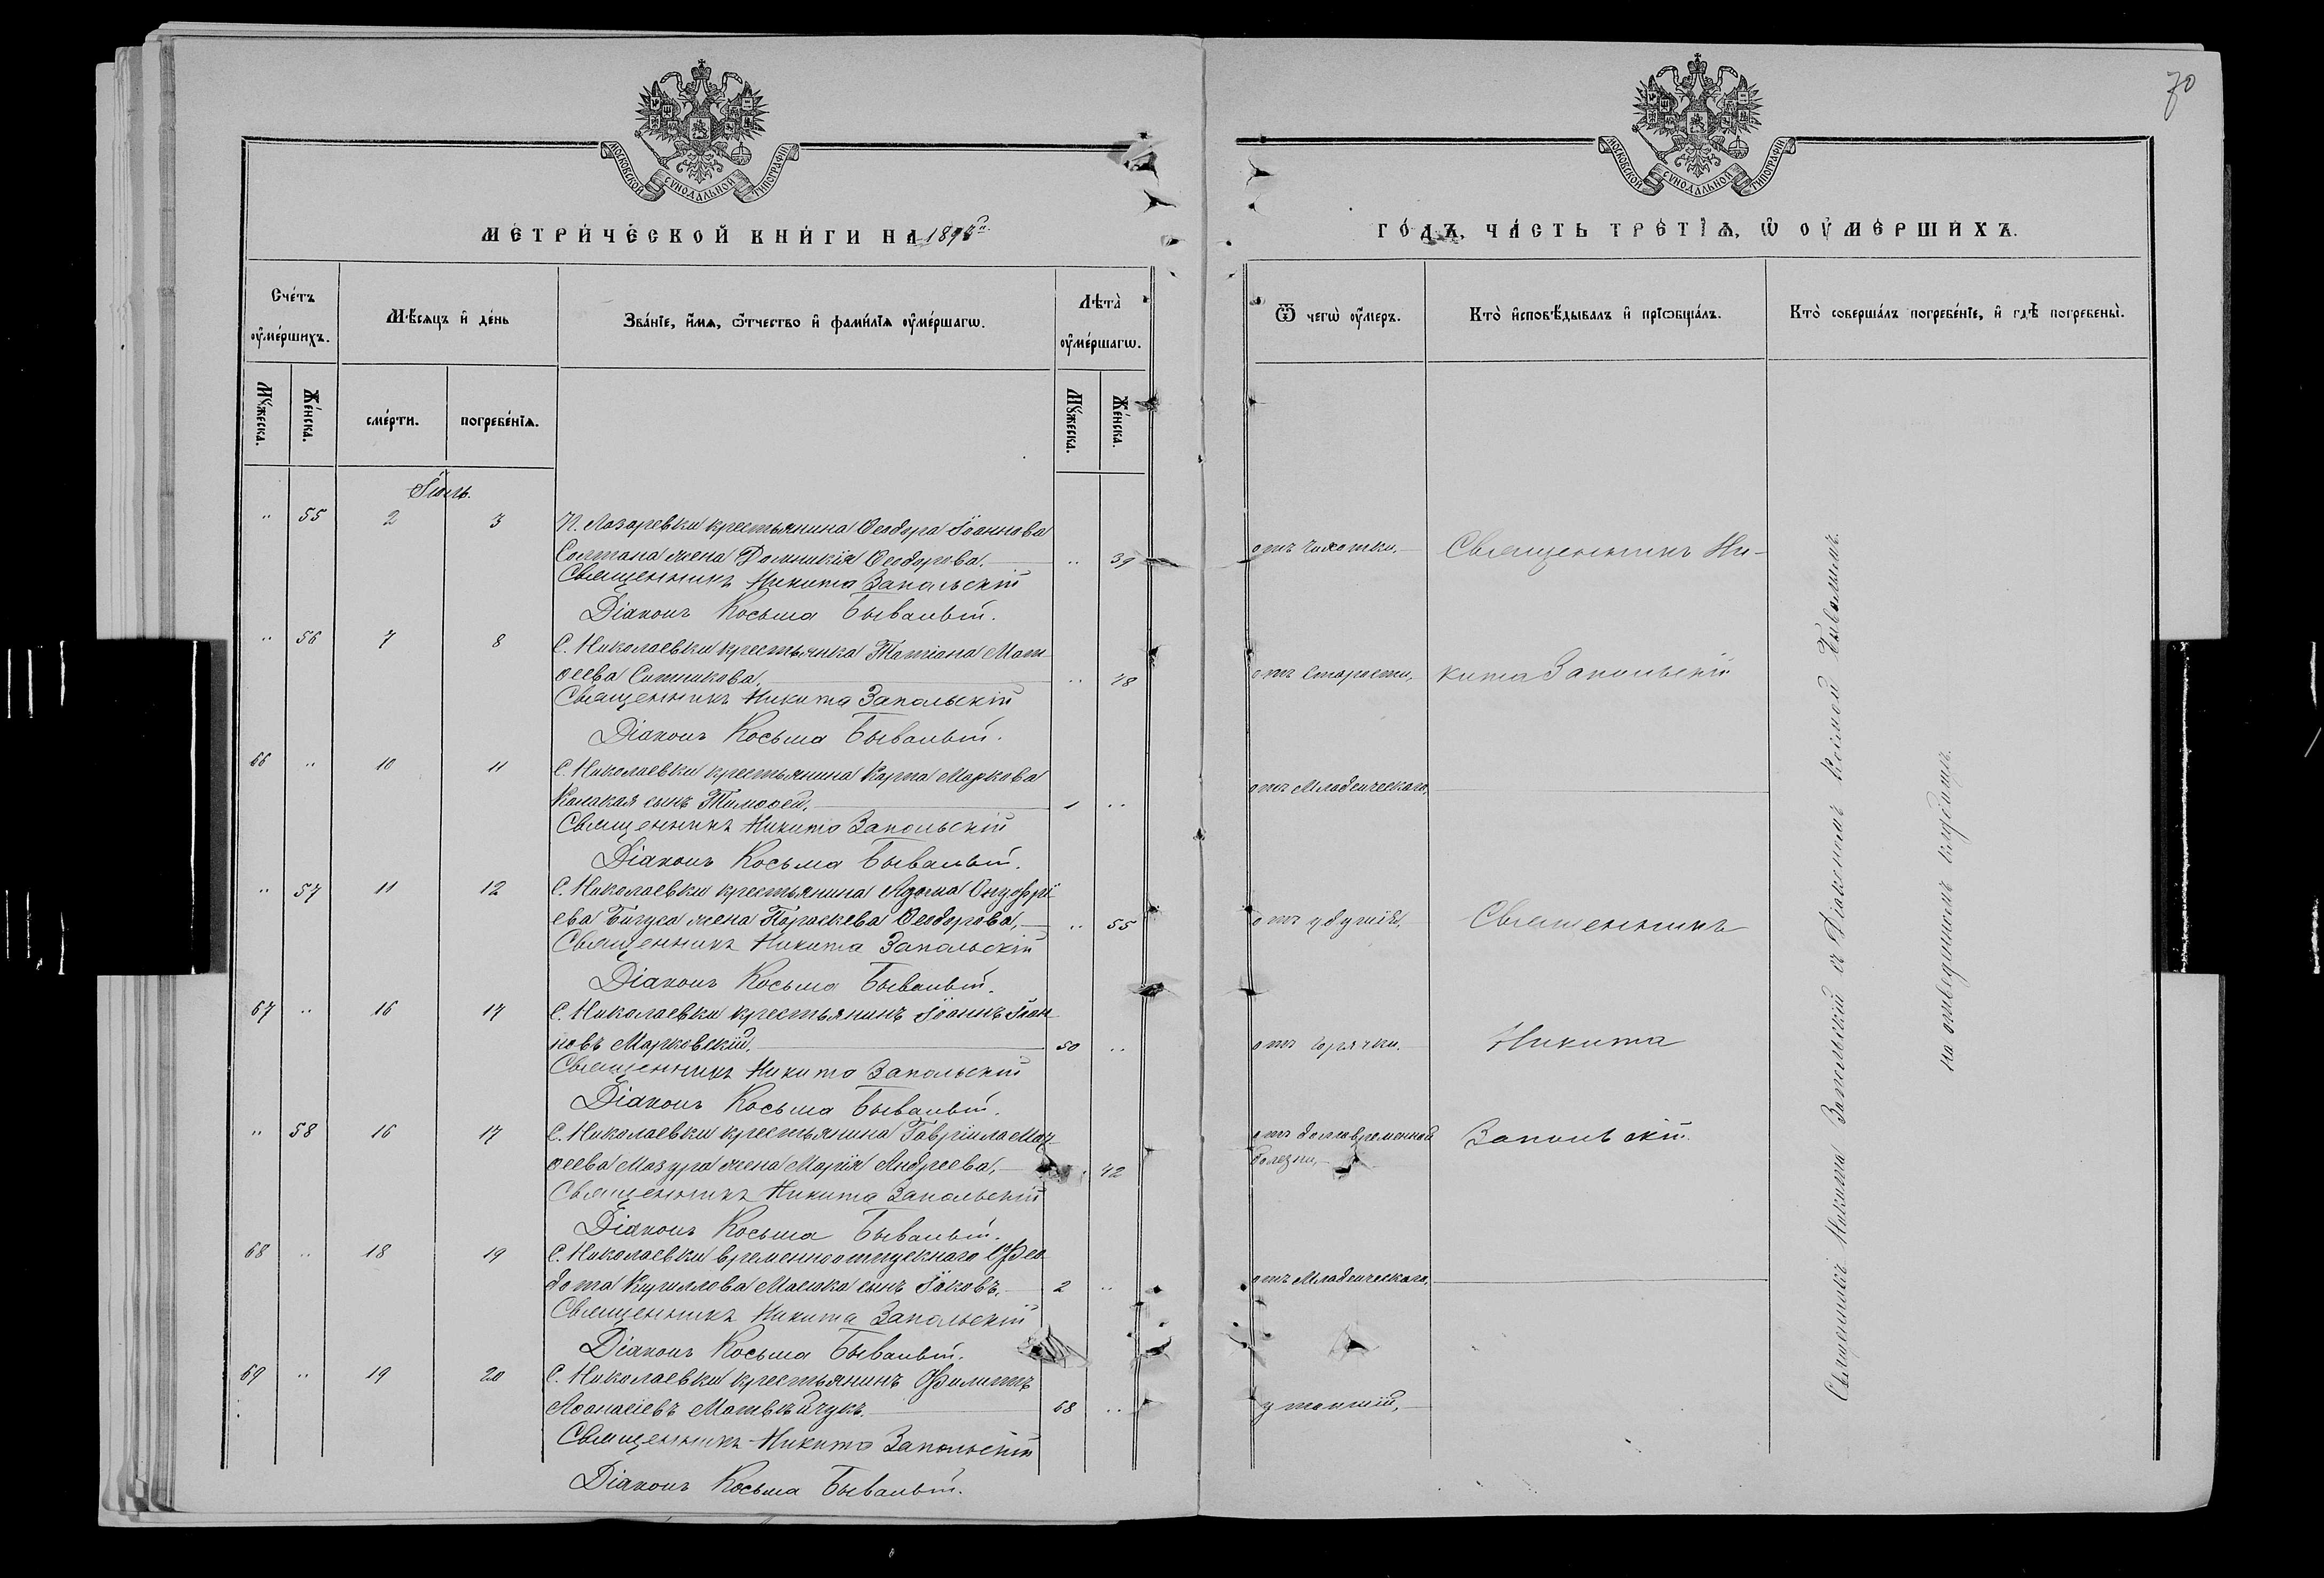 70
МОСКОВСКОЙ СѴНОДАЛЬНОЙ ТИПОГРАФІИ
МОСКОВСКОЙ СѴНОДАЛЬНОЙ ТИПОГРАФІИ
МЕТРИЧЕСКОЙ КНИГИ НА 189
ГОДЪ, ЧАСТЬ ТРЕТІѦ, Ѡ ОУМЕРШИХЪ.
Счетъ оумершихъ.
Мѣсяцъ и день
Званіе, имя, ѿчество и фамилія оумершагѡ.
Лѣта оумершагѡ.
Ѿ чегѡ оумеръ.
Кто исповѣдывалъ и пріѡбщалъ.
Кто совершалъ погребеніе, и гдѣ погребены.
Мужеска.
Женска.
смерти.
погребенія.
Мужеска.
Женска.
Іюль.
" 55 2 3 П. Лазаревки крестьянина Ѳеодора Іоаннова
Солтана жена Домникія Ѳеодорова. " 39 отъ чахотки. Священникъ Ни-
Священникъ Никита Запольскій
Діаконъ Косьма Бывалый.
" 56 7 8 С. Николаевки крестьянка Татіана Мат-
ѳеева Ситникова. " отъ старости, кита Запольскій
Священникъ Никита Запольскій
Діаконъ Косьма Бывалый.
66 " 10 11 С. Николаевки крестьянина Карпа Маркова
сынъ Тимоѳей. 1 " отъ Младенческаго,
Священникъ Никита Запольскій
Діаконъ Косьма Бывалый.
" 57 11 12 С. Николаевки крестьянина Адама Онуфрі-
ева Бигуса жена Параскева Ѳеодорова, " 55 отъ удушія, Священникъ
Священникъ Никита Запольскій
Діаконъ Косьма Бывалый.
67 " 16 17 С. Николаевки крестьянинъ Іоаннъ Іоан-
новъ Марковскій. 50 " отъ горячки. Никита
Священникъ Никита Запольскій
Діаконъ Косьма Бывалый.
" 58 16 17 С. Николаевки крестьянина Гавріила Мат-
ѳеева Мазура жена Марія Андреева, 42 отъ долговременной болезни, Запольскій.
Священникъ Никита Запольскій
Діаконъ Косьма Бывалый.
68 " 18 19 С. Николаевки временноотпускнаго Ѳео-
дота Кириллова сынъ Іаковъ, 2 " отъ Младенческаго,
Священникъ Никита Запольскій
Діаконъ Косьма Бывалый.
69 " 19 20 С. Николаевки крестьянинъ Филиппъ
Аѳанасіевъ Матвѣйчукъ. 68 " утопшій,
Священникъ Никита Запольскій
Діаконъ Косьма Бывалый.
Священникъ Никита Запольскій съ Діакономъ Космой Бывалымъ.
на отведенномъ кладбищѣ.